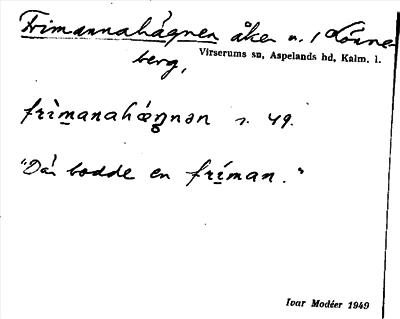 Frimannahägnen åker n. / Lönne-
berg,
Virserums sn, Aspelands hd, Kalm. l.
frìmanahæ̀ŋnən s. 49.
"Där bodde en fríman."
Ivar Modéer 1949